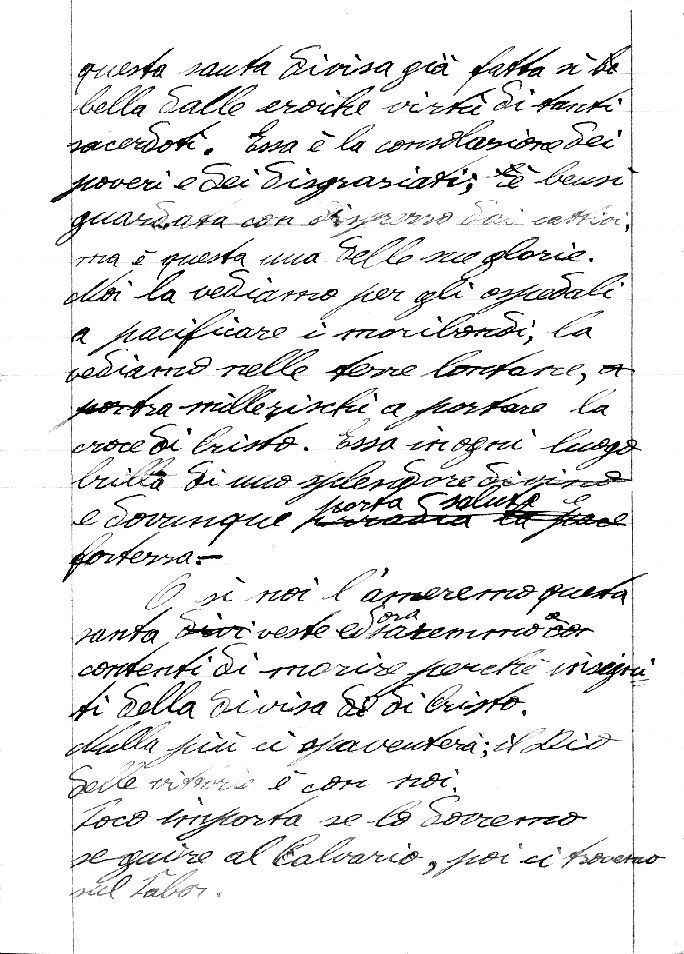 questa santa divisa già fatta sì
bella dalle eroiche virtù di tanti
sacerdoti. Essa è la consolazione dei
poveri e dei disgraziati; è bensì
guardata con disprezzo dai cattivi,
ma è questa una delle sue glorie.
Noi la vediamo per gli ospedali
a pacificare i moribondi, la
vediamo nelle terre lontane,
tra mille rischi a portare la
croce di Cristo. Essa in ogni luogo
brilla di uno splendore divino
porta salute e
e dovunque irradia la pace
fortezza.-
O sì noi l'ameremo questa
ora
santa divi veste ed saremmo
contenti di morire perchè insigni-
ti della divisa di di Cristo.
Nulla più ci spaventerà; il Dio
delle vittorie è con noi.
Poco importa se lo dovremo
seguire al Calvario, poi ci troveremo
sul Tabor.